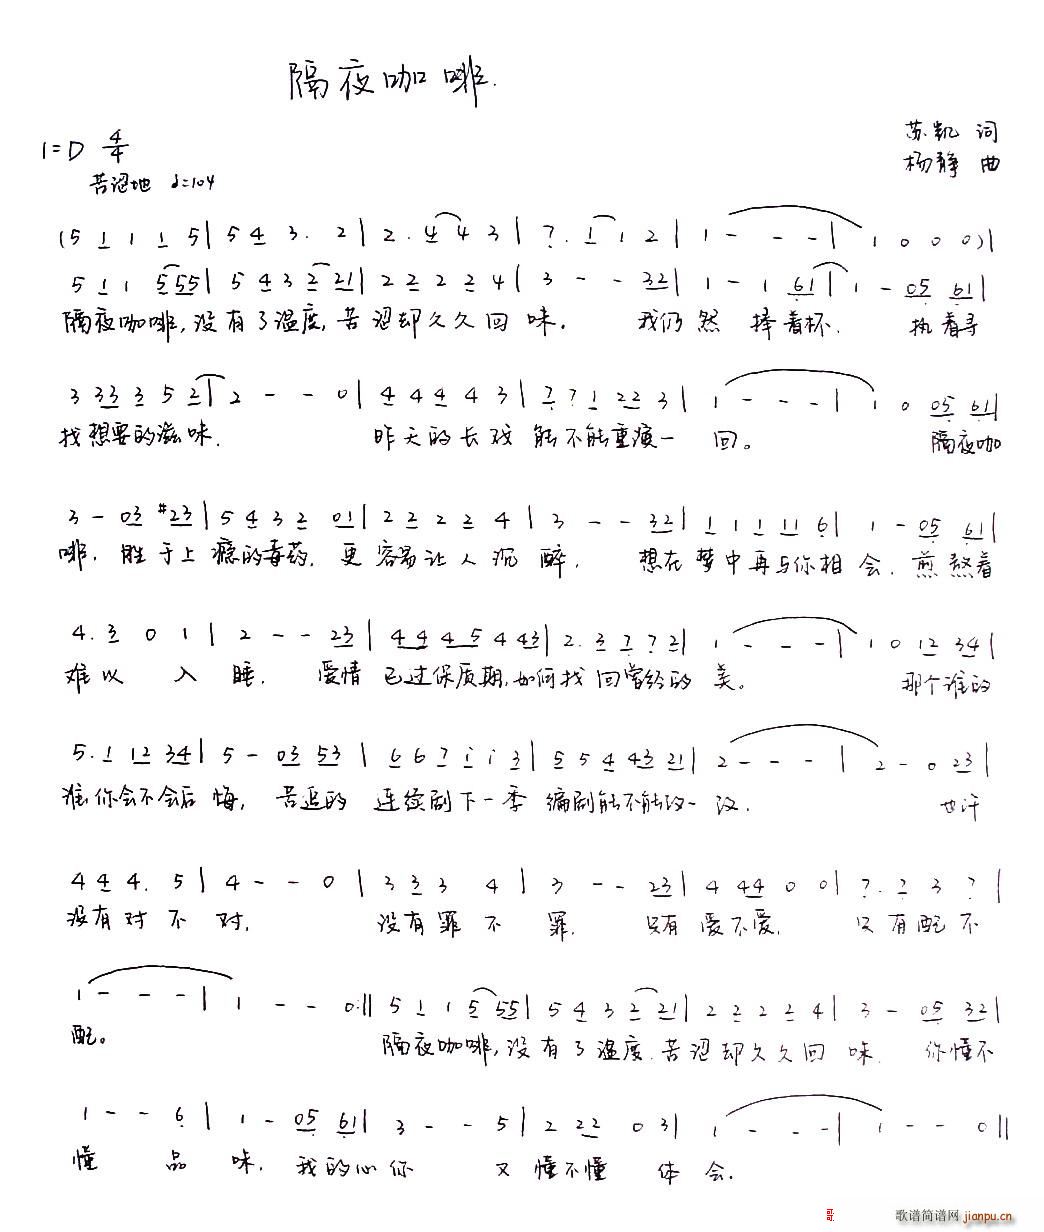 隔夜咖啡.
1=D 4/4
苏凯 词
杨静 曲
苦涩地 ♩=104
(5 1 1 1 5 | 5 4 3. 2 | 2. 4 4 3 | 7. 1 1 2 | 1 - - - | 1 0 0 0 )|
5 1 1 5 5 5 | 5 4 3 2 2 1 | 2 2 2 2 4 | 3 - - 3 2 | 1 - 1 6 1 | 1 - 0 5 6 1 |
隔夜咖啡,没有了温度,苦涩却久久回味. 我仍然 捧着杯. 执着寻
3 3 3 3 5 2 | 2 - - 0 | 4 4 4 4 3 | 7 7 1 2 2 3 | 1 - - - | 1 0 0 5 6 1 |
找想要的滋味. 昨天的长戏 能不能重演一回。 隔夜咖
3 - 0 3 #2 3 | 5 4 3 2 0 1 | 2 2 2 2 4 | 3 - - 3 2 | 1 1 1 1 1 6 | 1 - 0 5 6 1 |
啡, 胜于上瘾的毒药. 更容易让人沉醉, 想在梦中再与你相会. 煎熬着
4. 3 0 1 | 2 - - 2 3 | 4 4 4 5 4 4 3 | 2. 3 7 7 2 | 1 - - - | 1 0 1 2 3 4 |
难以 入睡. 爱情已过保质期,如何找回曾经的美。 那个谁的
5. 1 1 2 3 4 | 5 - 0 3 5 3 | 6 6 7 i i 3 | 5 5 4 4 3 2 1 | 2 - - - | 2 - 0 2 3 |
谁你会不会后悔, 苦追的 连续剧下一季 编剧能不能改一改. 也许
4 4 4. 5 | 4 - - 0 | 3 3 3 4 | 3 - - 2 3 | 4 4 4 0 0 | 7. 7 3 7 |
没有对不对, 没有罪不罪, 只有爱不爱, 只有配不
1 - - - | 1 - - 0 :|| 5 1 1 5 5 5 | 5 4 3 2 2 1 | 2 2 2 2 4 | 3 - 0 5 3 2 |
配。 隔夜咖啡,没有了温度.苦涩却久久回味. 你懂不
1 - - 6 | 1 - 0 5 6 1 | 3 - - 5 | 2 2 2 0 3 | 1 - - - | 1 - - 0 ||
懂 品味, 我的心你 又懂不懂 体会.
歌谱简谱网
jianpu.cn